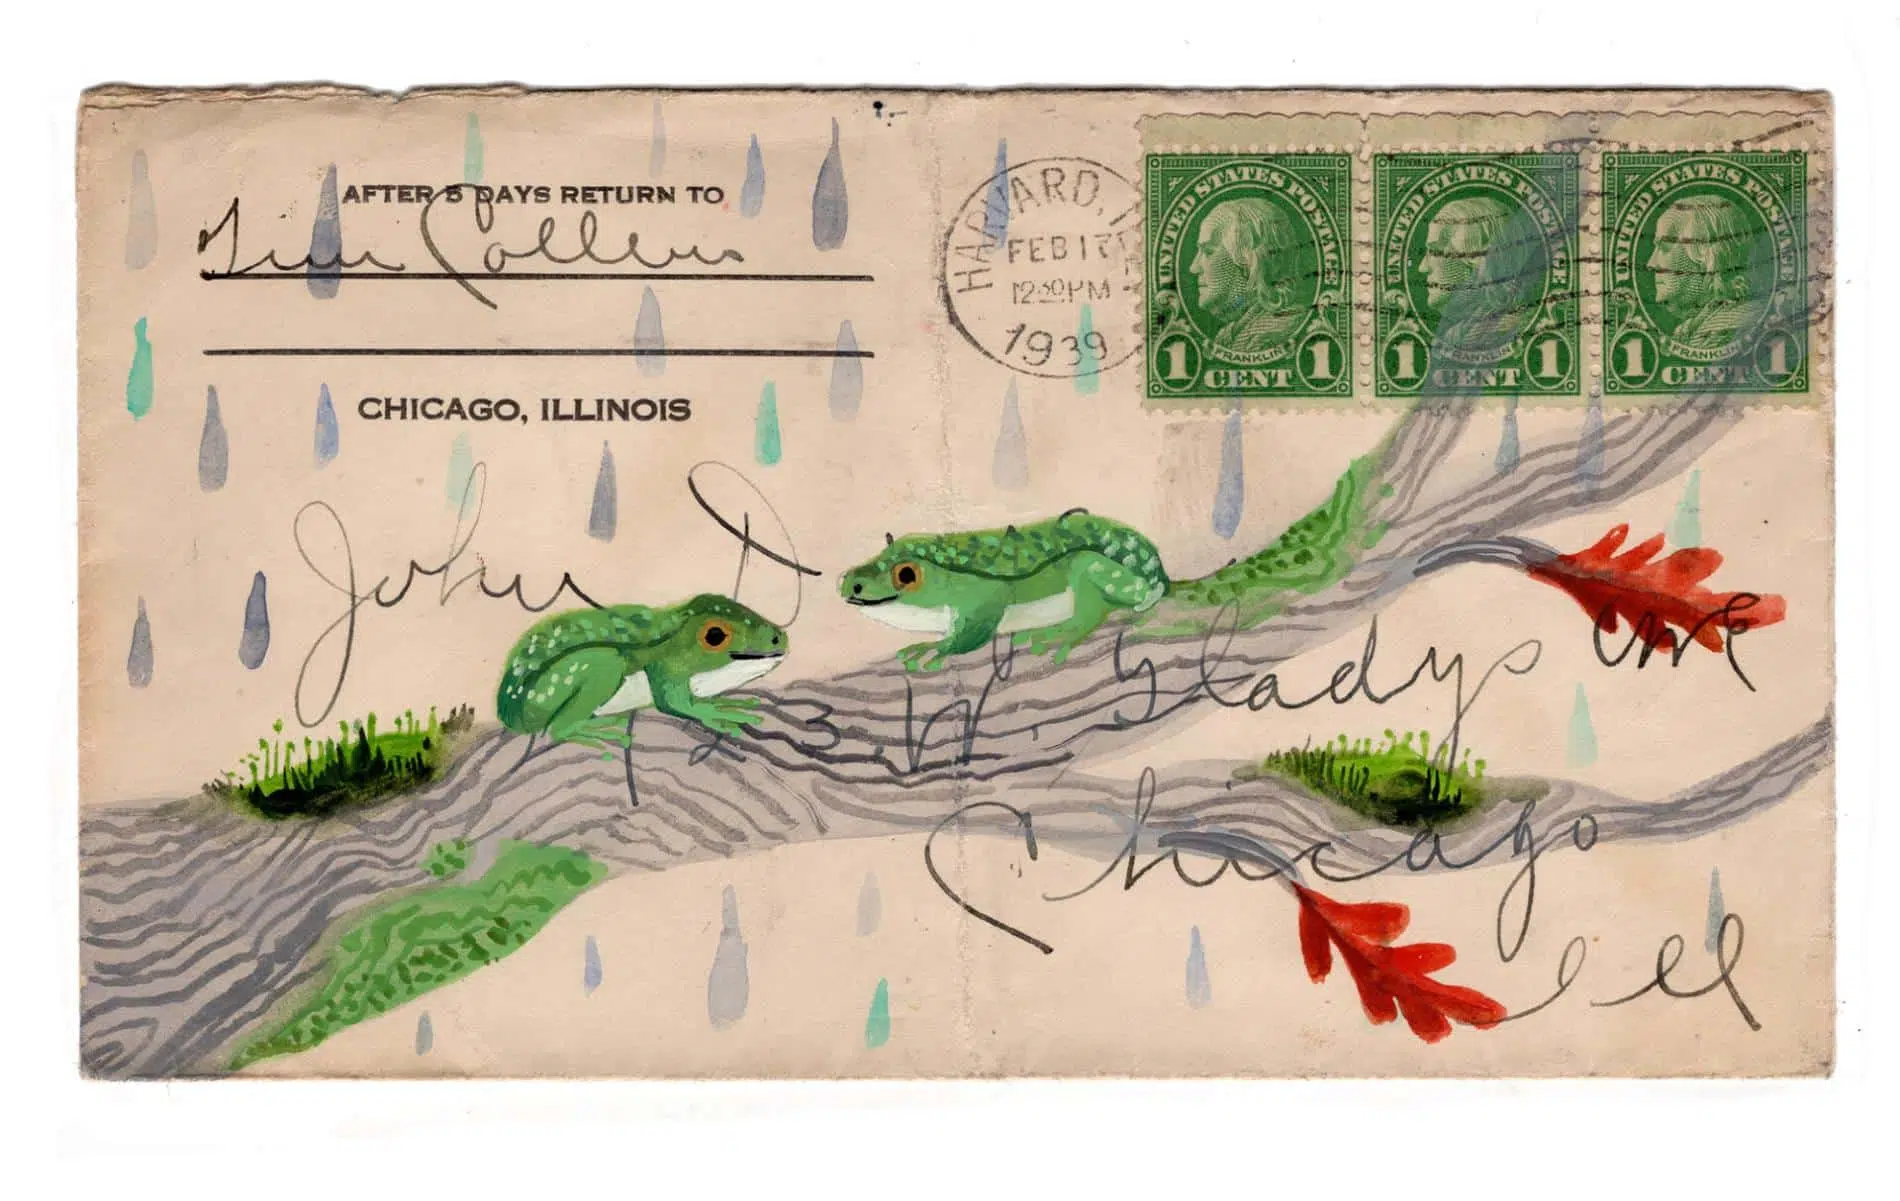 AFTER 5 DAYS RETURN TO
Tim Collins
CHICAGO, ILLINOIS
HARVARD,
FEB 17
12:30PM
1939
UNITED STATES POSTAGE
FRANKLIN
1 CENT 1
UNITED STATES POSTAGE
FRANKLIN
1 CENT 1
UNITED STATES POSTAGE
FRANKLIN
1 CENT 1
John D
W. Gladys Ave
Chicago
Ill